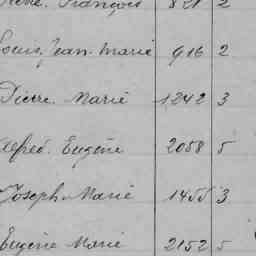 François 821 2
Louis, Jean Marie 916 2
Pierre Marie 1242 3
Alfred Eugène 2058 5
Joseph Marie 1455 3
Eugène Marie 2152 5